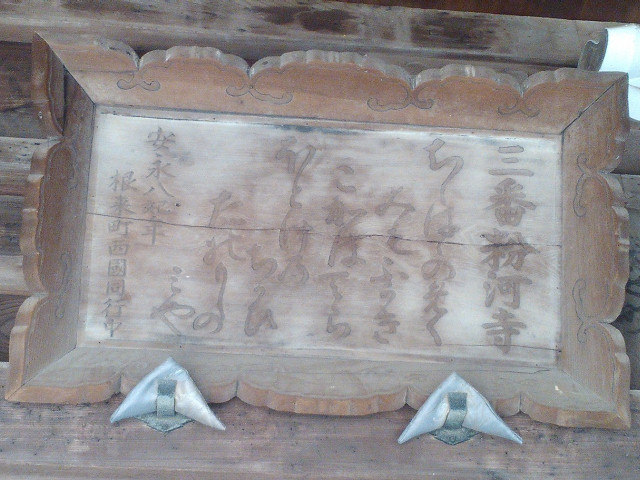 三番粉河寺
ちゝはゝのめく
みもふかき
こかはてら
ほとけの
ちかひ
たのもしの
ミや
安永八亥年
根来町西國同行中